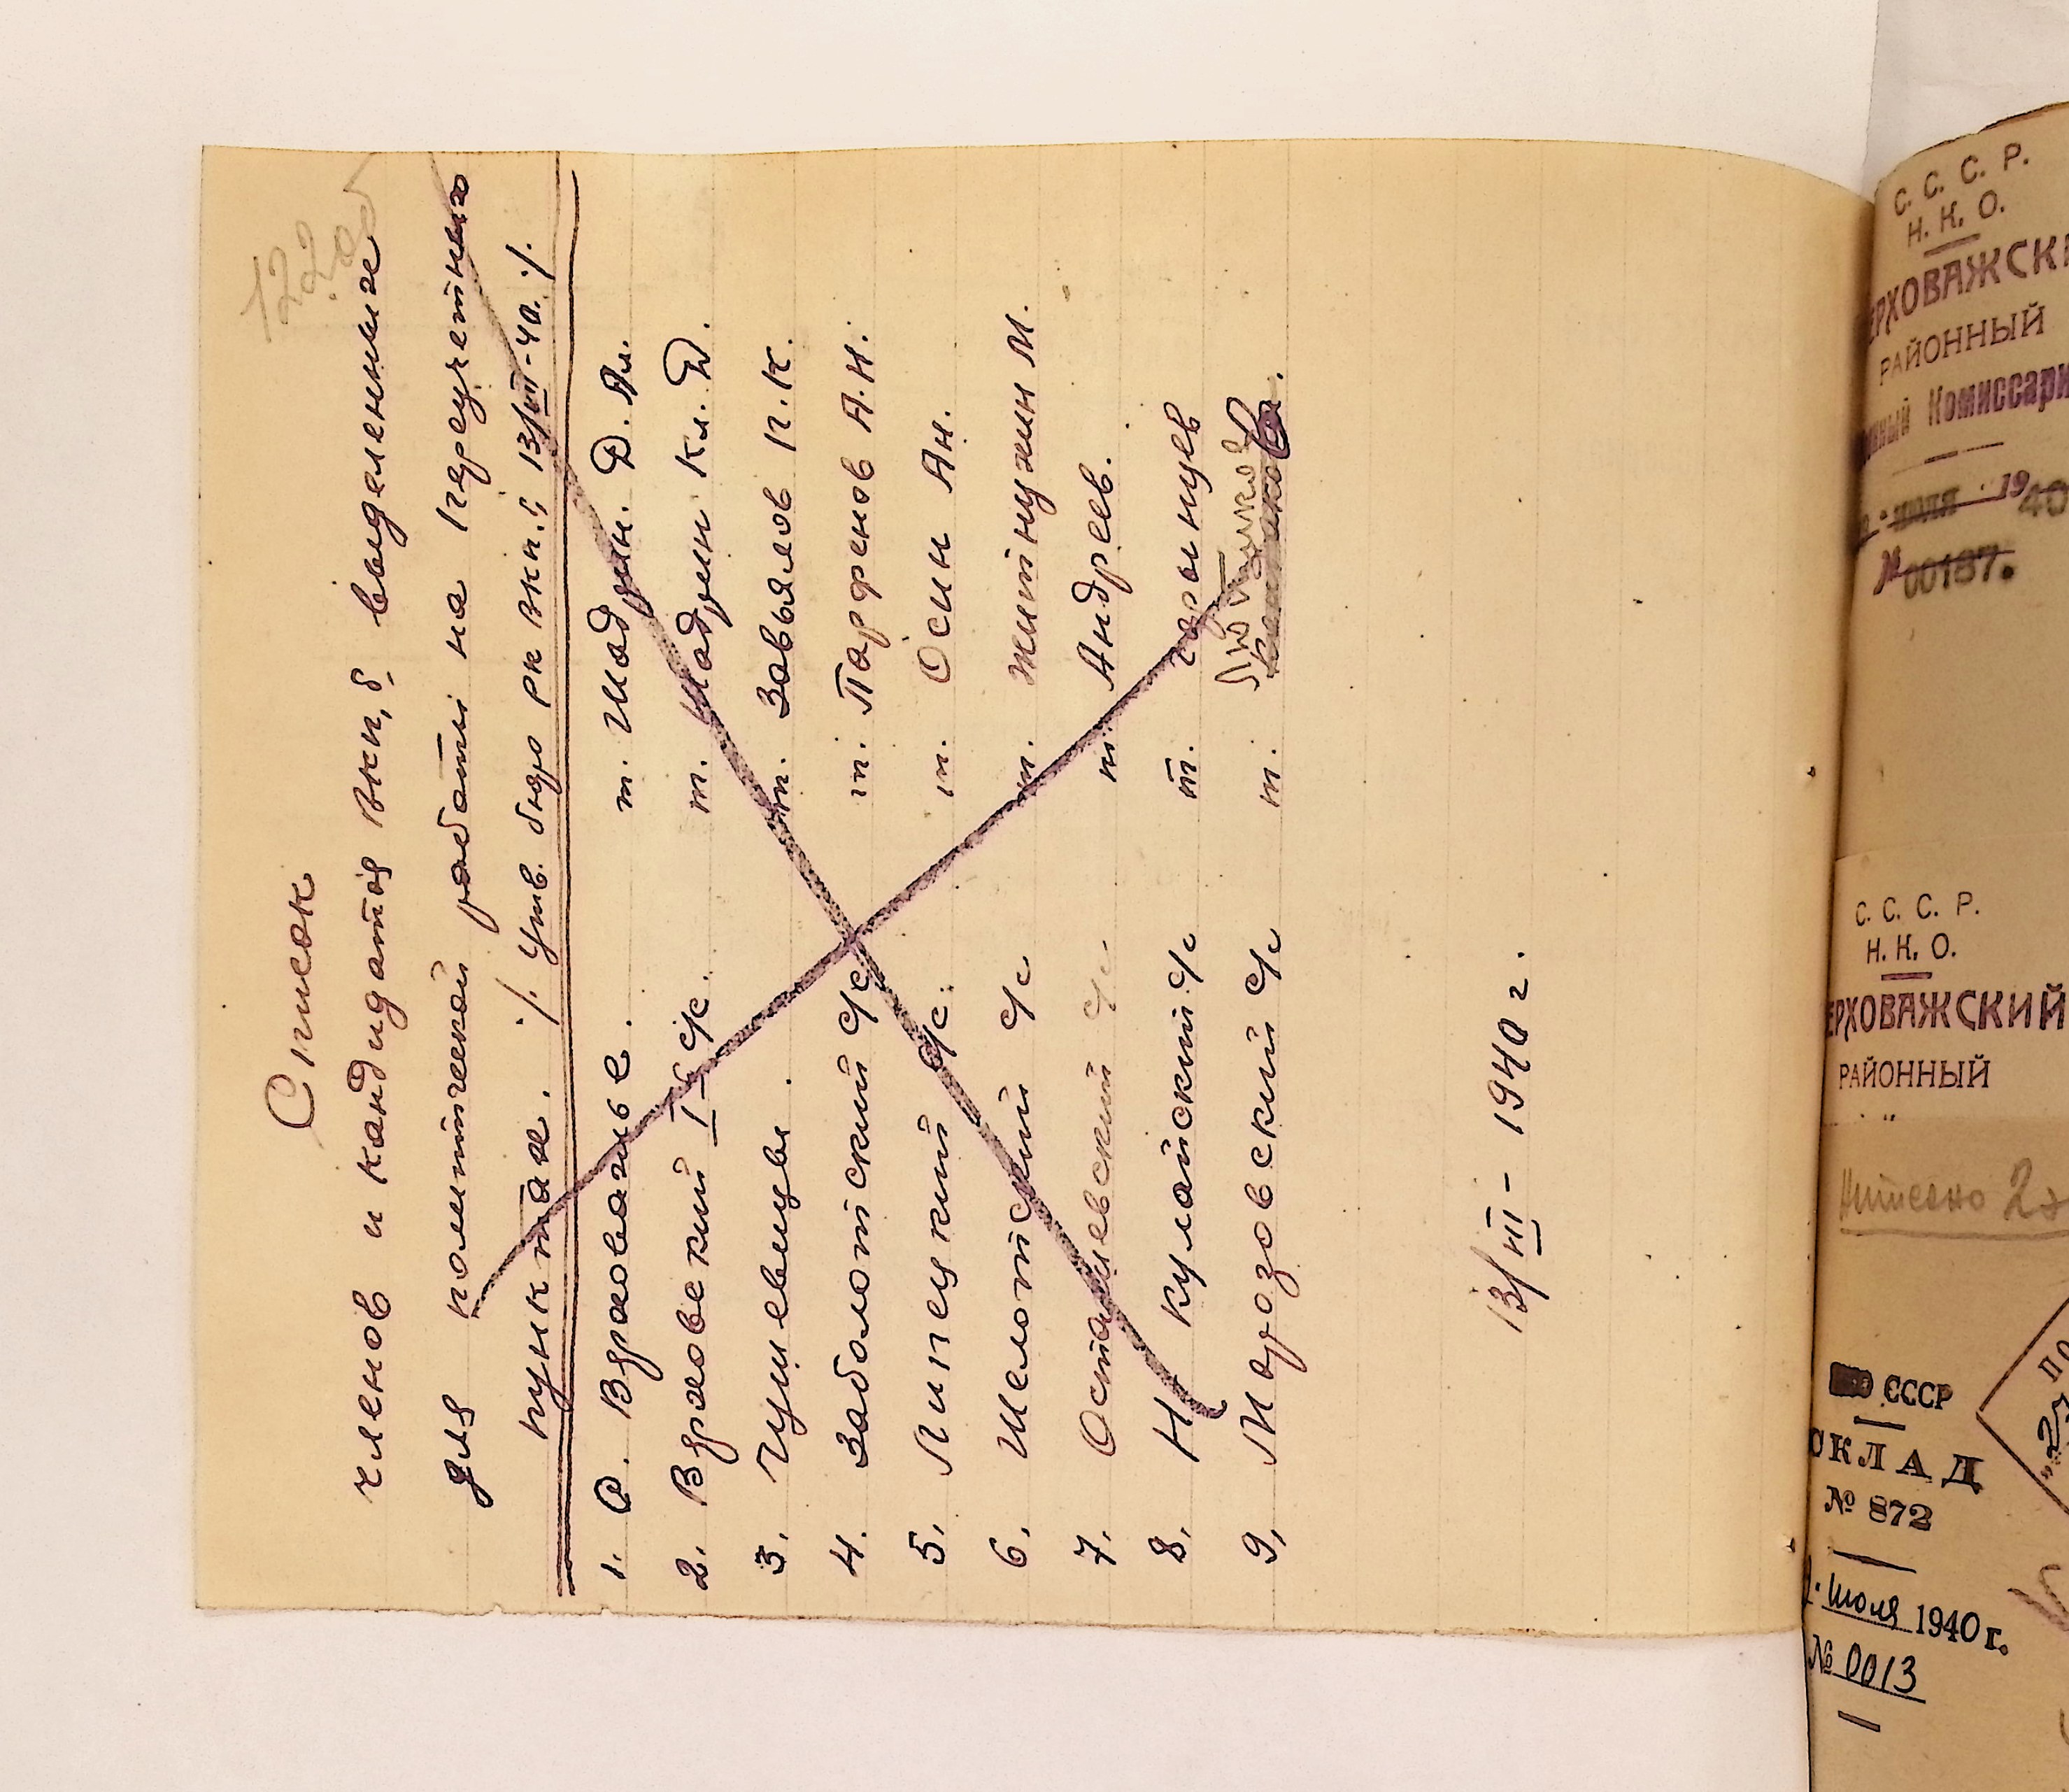 122
Список
членов и кандидатов ВКП,б выделенных
для политической работы на переучетных
пунктах. ·/. Утв. бюро РК ВКП.б 13/VII-40. ·/.
1. С. Врховажье. т. Шадрин. Д. Ял.
2. Врховский I-й с/с. т. Шадрин Кл. Д.
3. Чушевицы. т. Завьялов П.К.
4. Заболотский с/с т. Парфенов А.Н.
5. Липецкий с/с. т. Осин Ан.
6. Шелотский с/с т. Житнухин М.
7. Осташевский с/с т. Андреев.
8. Н Кулойский с/с т. Горынцев
9. Морозовский с/с т.
13/VII - 1940 г.
С. С. С. Р.
Н. К. О.
ЕРХОВАЖСКИ
РАЙОННЫЙ
нный Комиссари
июля 1940
№ 00187.
С. С. С. Р.
Н. К. О.
ЕРХОВАЖСКИЙ
РАЙОННЫЙ
СССР
СКЛАД
№ 872
июля 1940 г.
№ 0013